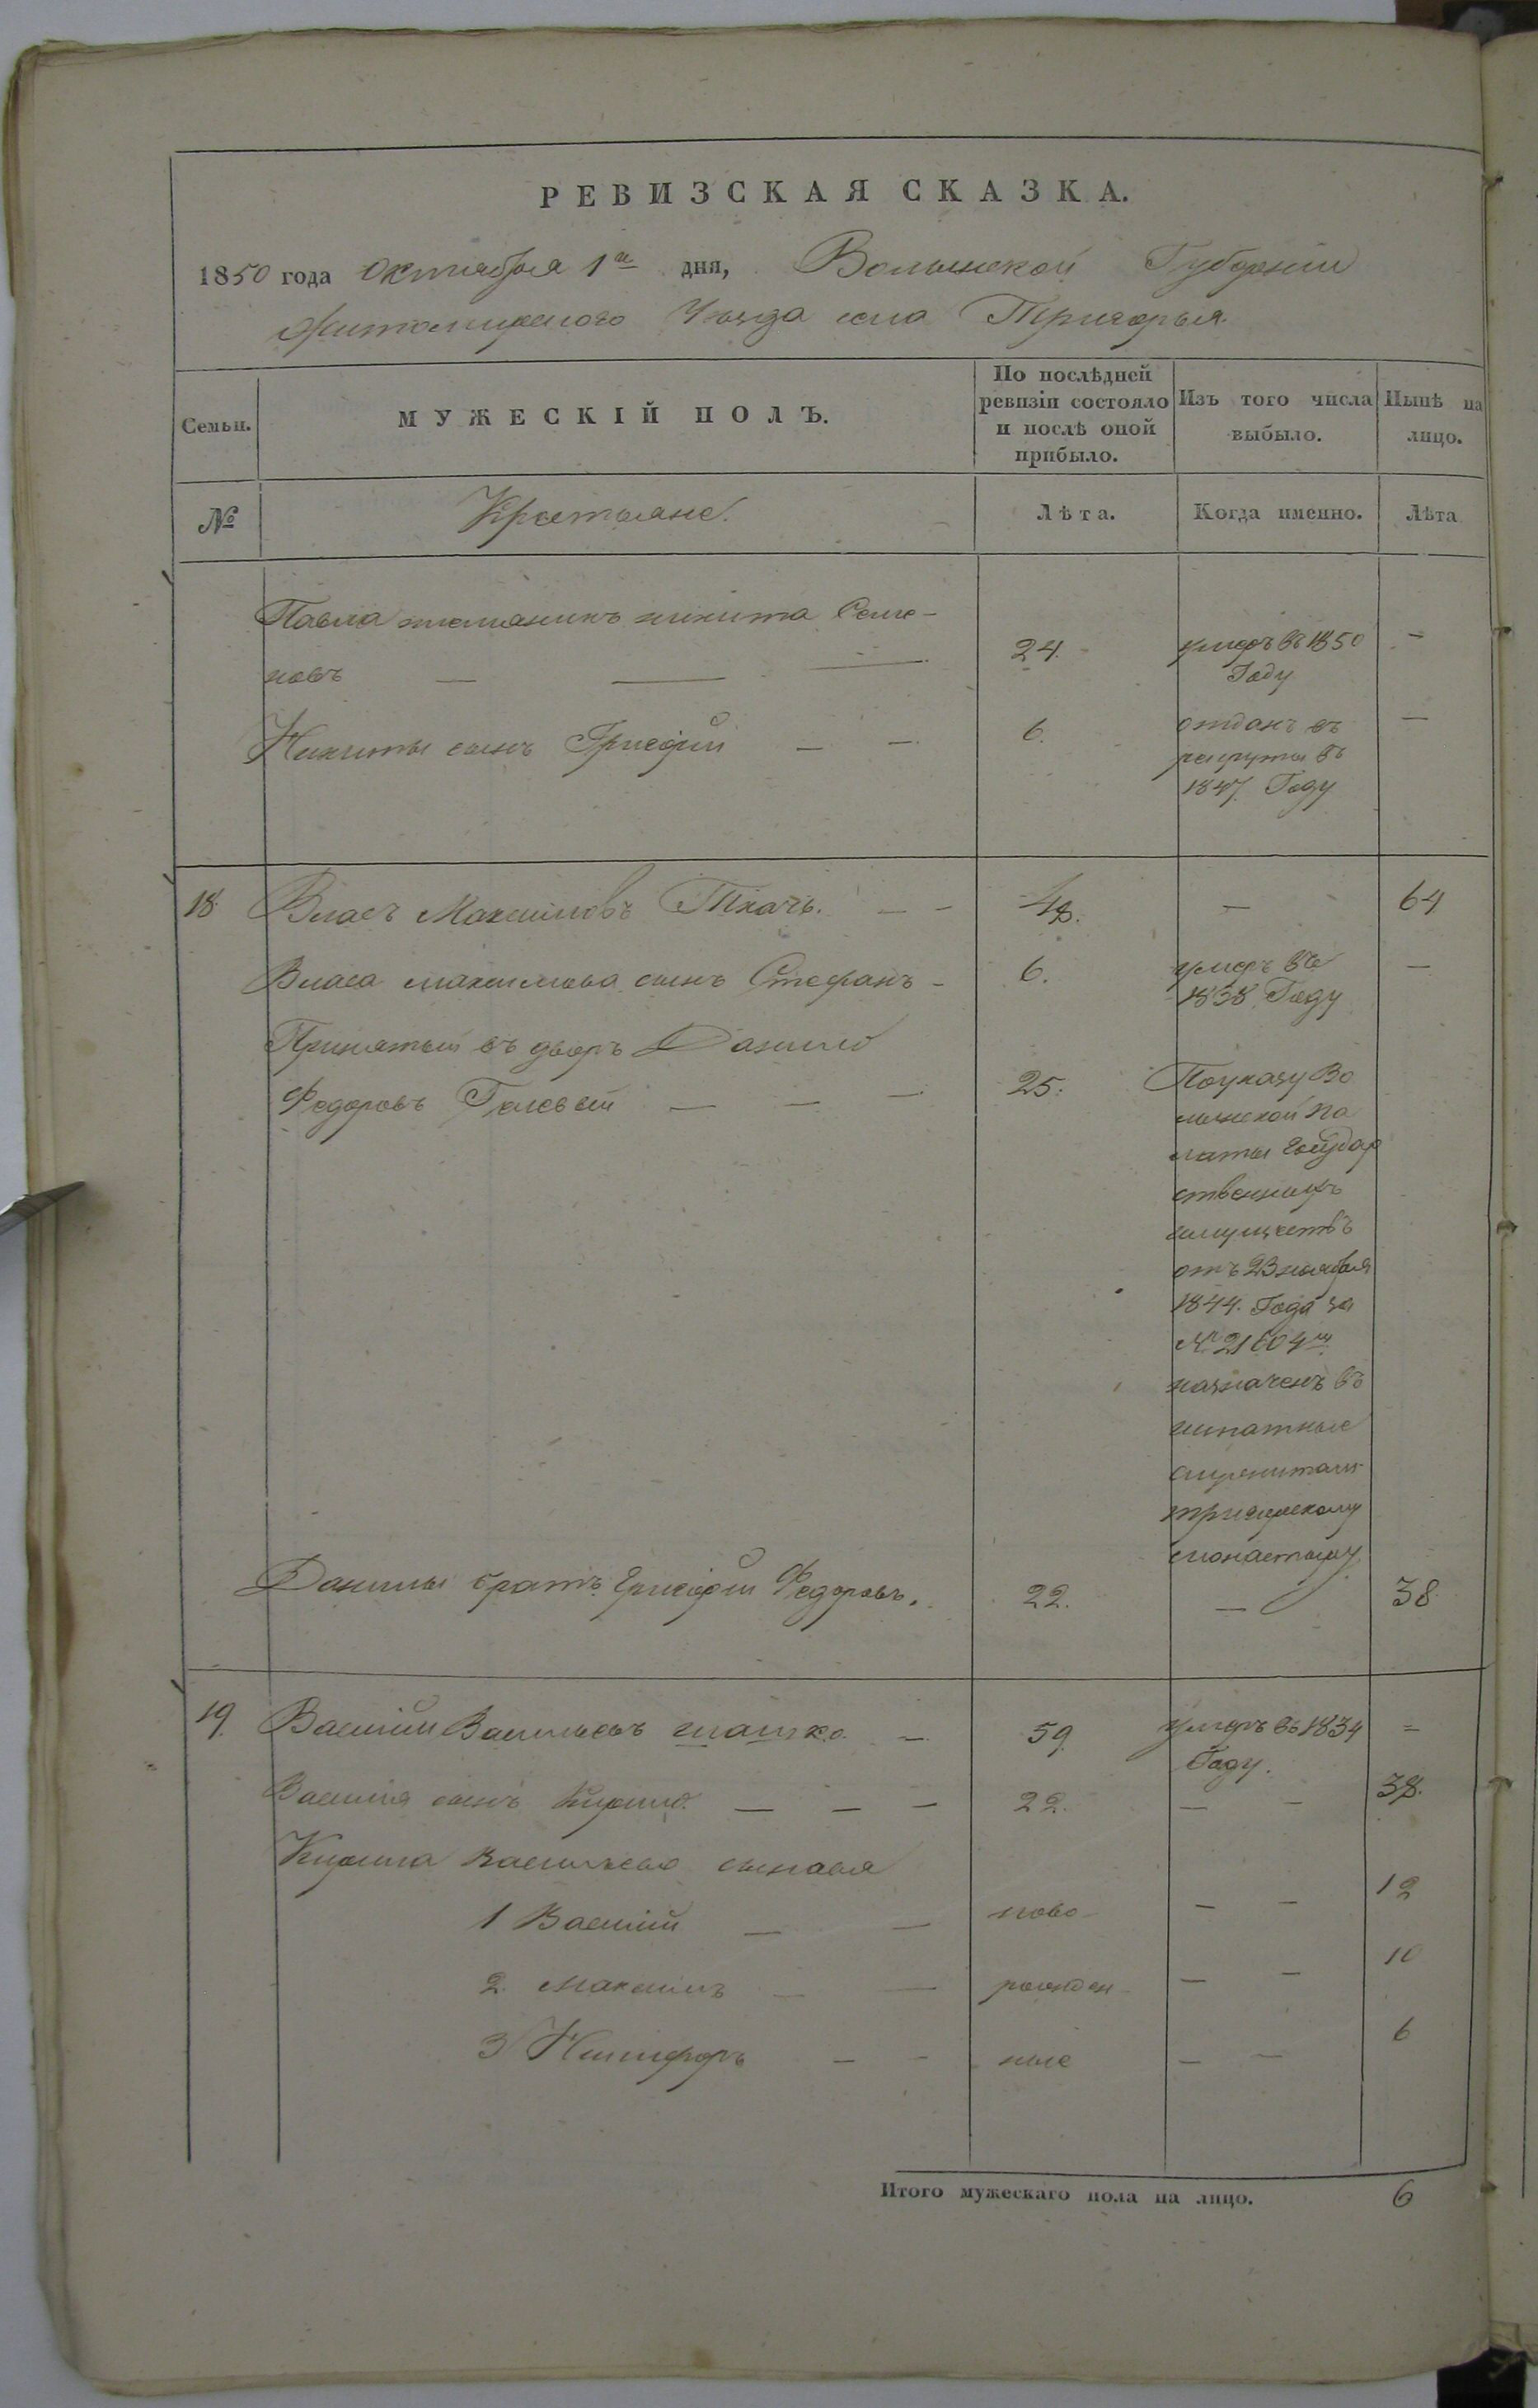 РЕВИЗСКАЯ СКАЗКА.
1850 года Октября 1го дня, Волынской Губернии
Житомирского Уѣзда села Тригорья.
Семьи.
МУЖЕСКІЙ ПОЛЪ.
По послѣдней ревизіи состояло и послѣ оной прибыло.
Изъ того числа выбыло.
Нынѣ на лицо.
№
Крестьяне.
Лѣта.
Когда именно.
Лѣта
Павла племяникъ никита Семе-
новъ — — — 24. умеръ въ 1850 Году —
Никиты сынъ Григорій — — 6. отданъ въ рекруты въ 1847. Году —
18. Власъ Максимовъ Ткачъ. — — 48. — 64
Власа максимова сынъ Стефанъ - 6. умеръ въ 1838 Году —
Принятый въ дворъ Данило
Федоровъ — — — 25. По указу Во
лынской па
латы Государ
ственныхъ
имуществъ
отъ 23 ноября
1844. Года за
№ 21604м
назначенъ въ
штатные
служители
тригорскому
монастырю
Данилы братъ Григорій Федоровъ. 22. — 38
19. Василій Васильевъ шашко. — 59. умеръ въ 1834 Году. =
Василія сынъ Кирило. — — — 22. — - 38.
Кирила Васильева сыновья
1 Василій — — ново- — - 12
2. Максимъ — — рожден- — - 10
3 Никифоръ — - ные — — 6
Итого мужескаго пола на лицо. 6